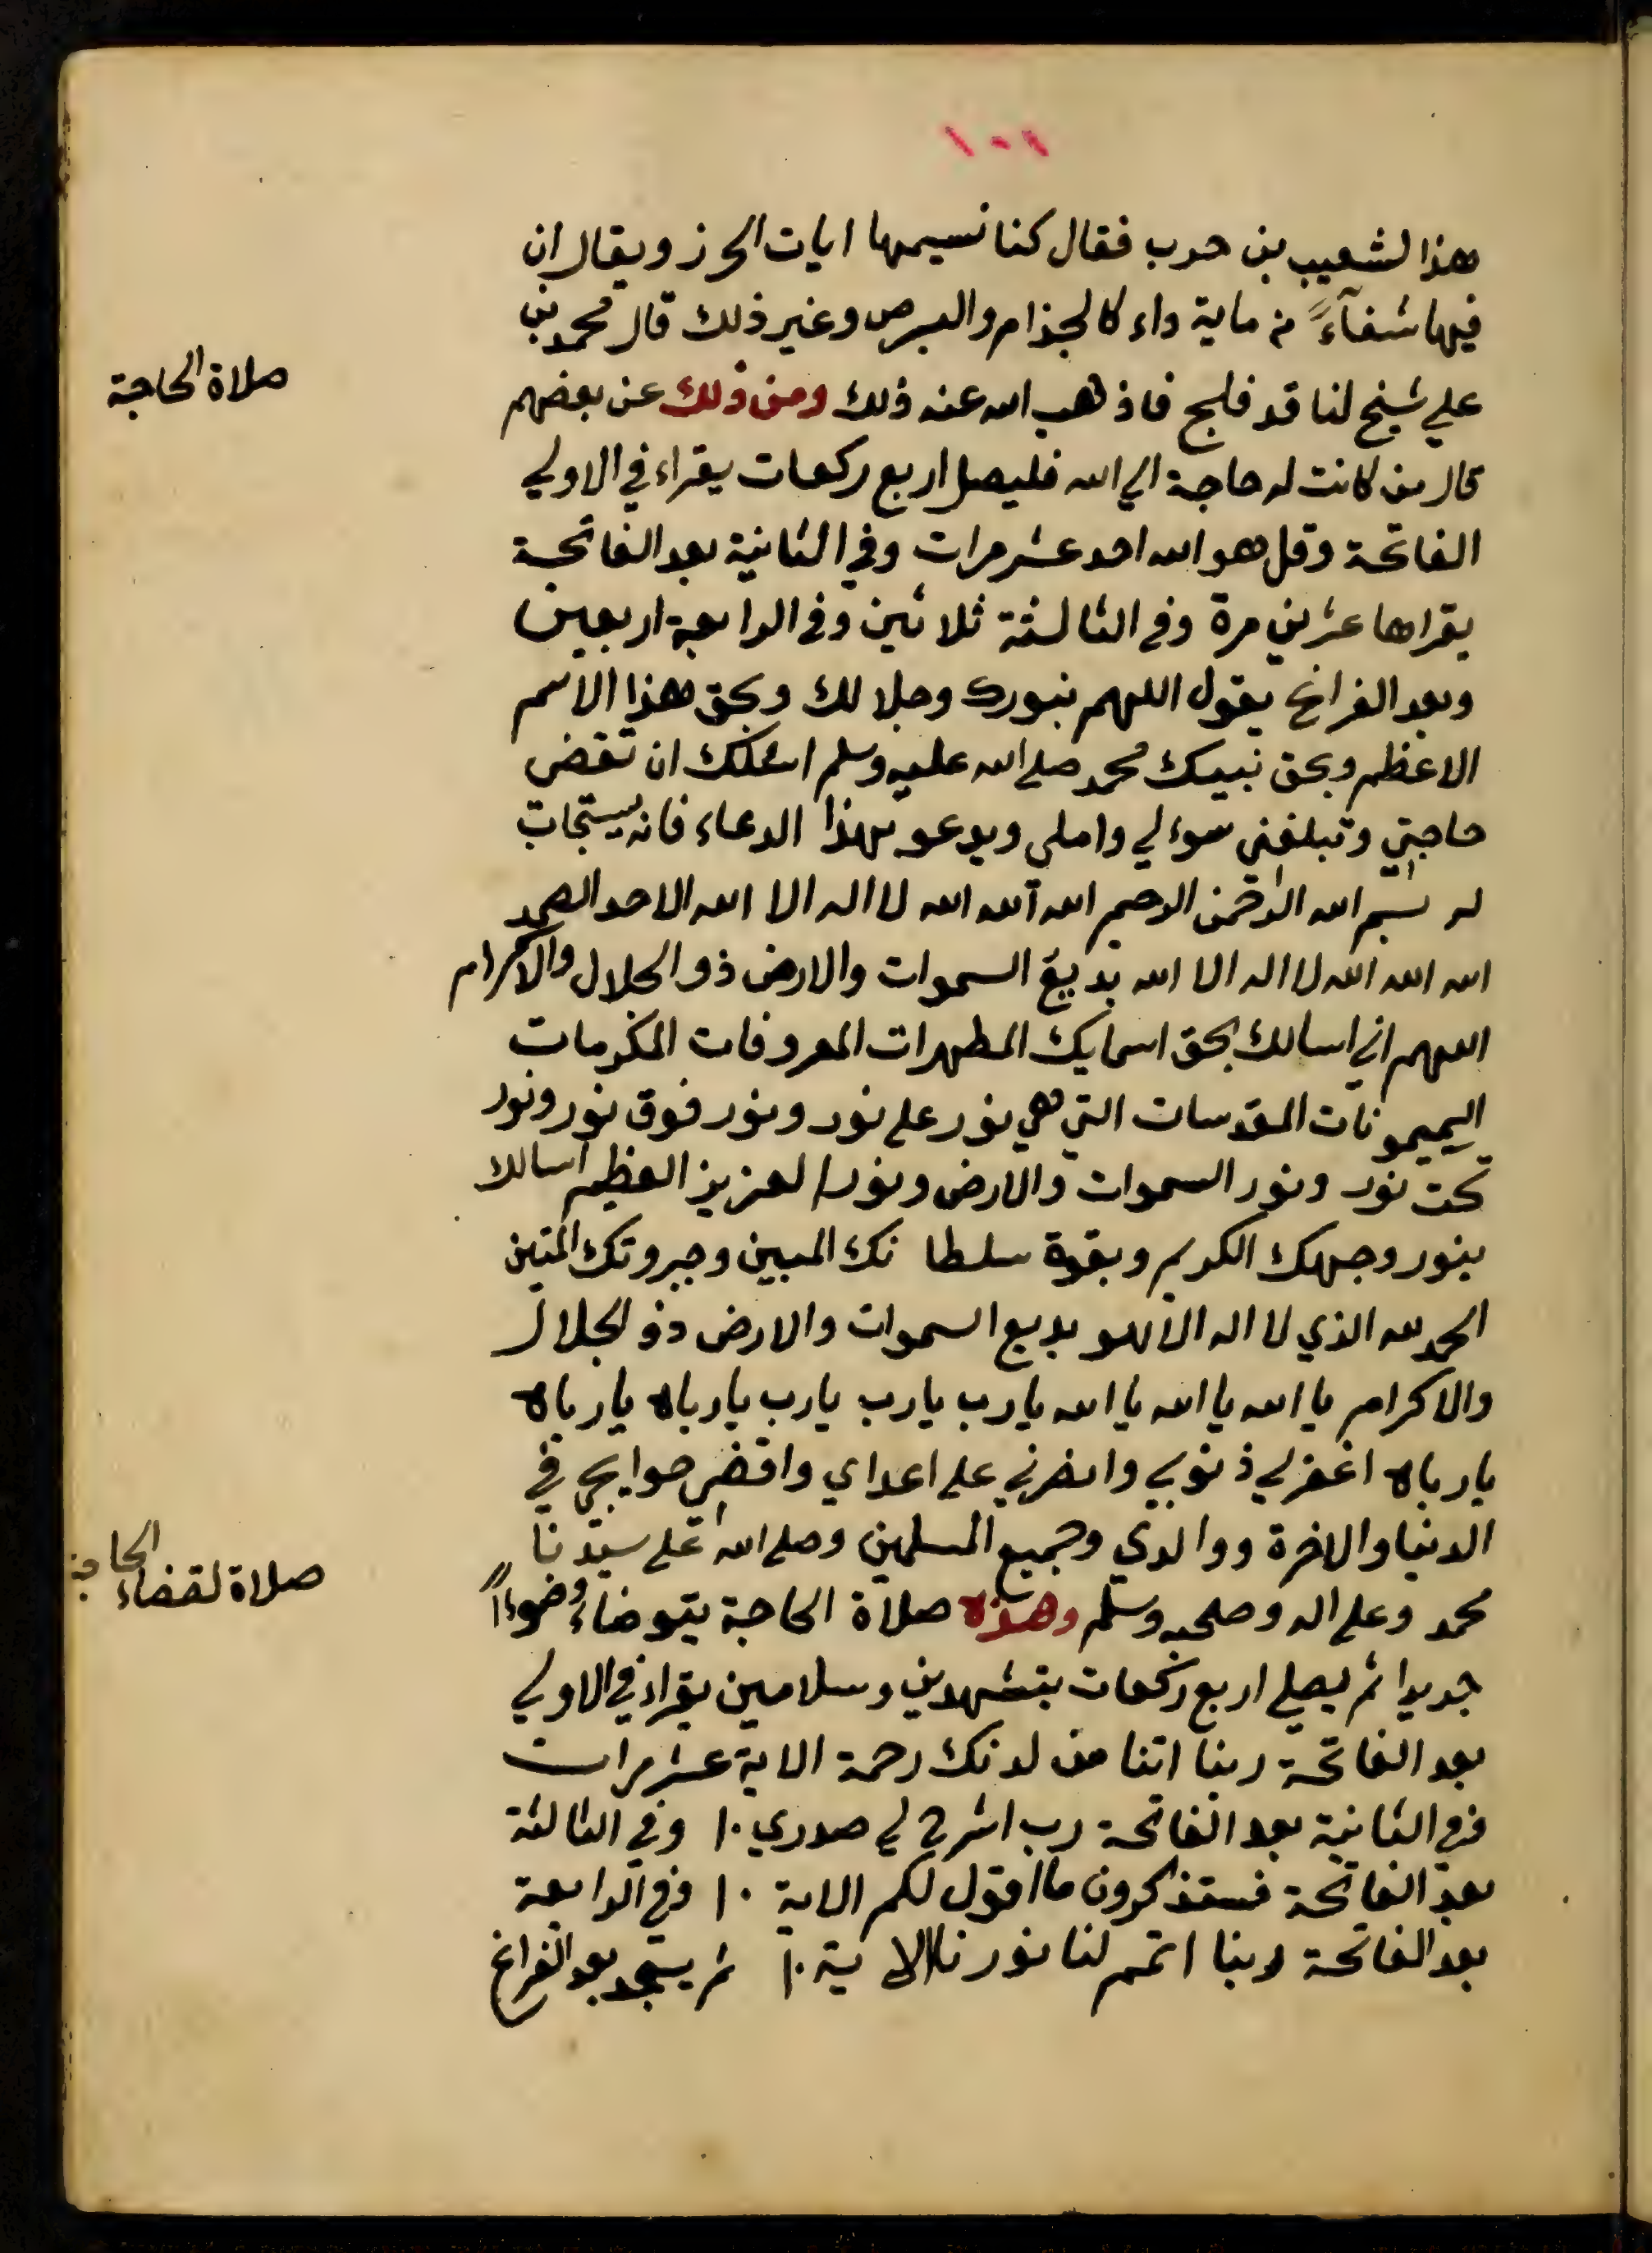 ١٠١
هذا لشعيب بن حرب فقال كنا نسيمها ايات الحرز ويقال ان
فيها شفآءً من ماية داء كالجذام والبرص وغير ذلك قال محمد بن
علي شيخ لنا قد فلج فاذهب الله عنه ذلك ومن ذلك عن بعضهم
صلاة الحاجة
قال من كانت له حاجة الي الله فليصل اربع ركعات يقراء في الاولي
الفاتحة وقل هو الله احد عشر مرات وفي الثانية بعد الفاتحة
يقراها عشرين مرة وفي الثالثة ثلاثين وفي الرابعة اربعين
وبعد الفراغ يقول اللهم بنورك وجلالك وبحق هذا الاسم
الاعظم وبحق نبيك محمد صلي الله عليه وسلم اسئلك ان تقضي
حاجتي وتبلغني سوءلي واملي ويدعو بهذا الدعاء فانه يستجاب
له بسم الله الرحمن الرحيم الله الله الله لا اله الا الله الاحد الصمد
الله الله الله لا اله الا الله بديع السموات والارض ذو الجلال والاكرام
اللهم اني اسالك بحق اسمايك المطهرات المعروفات المكرمات
الميمونات المقدسات التي هي نور علي نور ونور فوق نور ونور
تحت نور ونور السموات والارض ونور العزيز العظيم اسالك
بنور وجهك الكريم وبقوة سلطانك المبين وجبروتك المتين
الحمد لله الذي لا اله الا هو بديع السموات والارض ذو الجلال
والاكرام يا الله يا الله يا الله يارب يارب يارب يارباه يارباه
يارباه اغفر لي ذنوبي وانصرني علي اعداي واقضي حوايجي في
الدنيا والاخرة ووالدي وجميع المسلمين وصلي الله علي سيدنا
محمد وعلي اله وصحبه وسلم وهذه صلاة الحاجة يتوضاء وضوءاً
صلاة لقضاء الحاجة
جديدا ثم يصلي اربع ركعات بتشهدين وسلامين يقراء في الاولي
بعد الفاتحة ربنا اتنا من لدنك رحمة الاية عشر مرات
وفي الثانية بعد الفاتحة رب اشرح لي صدري ١٠ وفي الثالثة
بعد الفاتحة فستذكرون ما اقول لكم الاية ١٠ وفي الرابعة
بعد الفاتحة ربنا اتمم لنا نورنا الاية ١٠ ثم يسجد بعد الفراغ